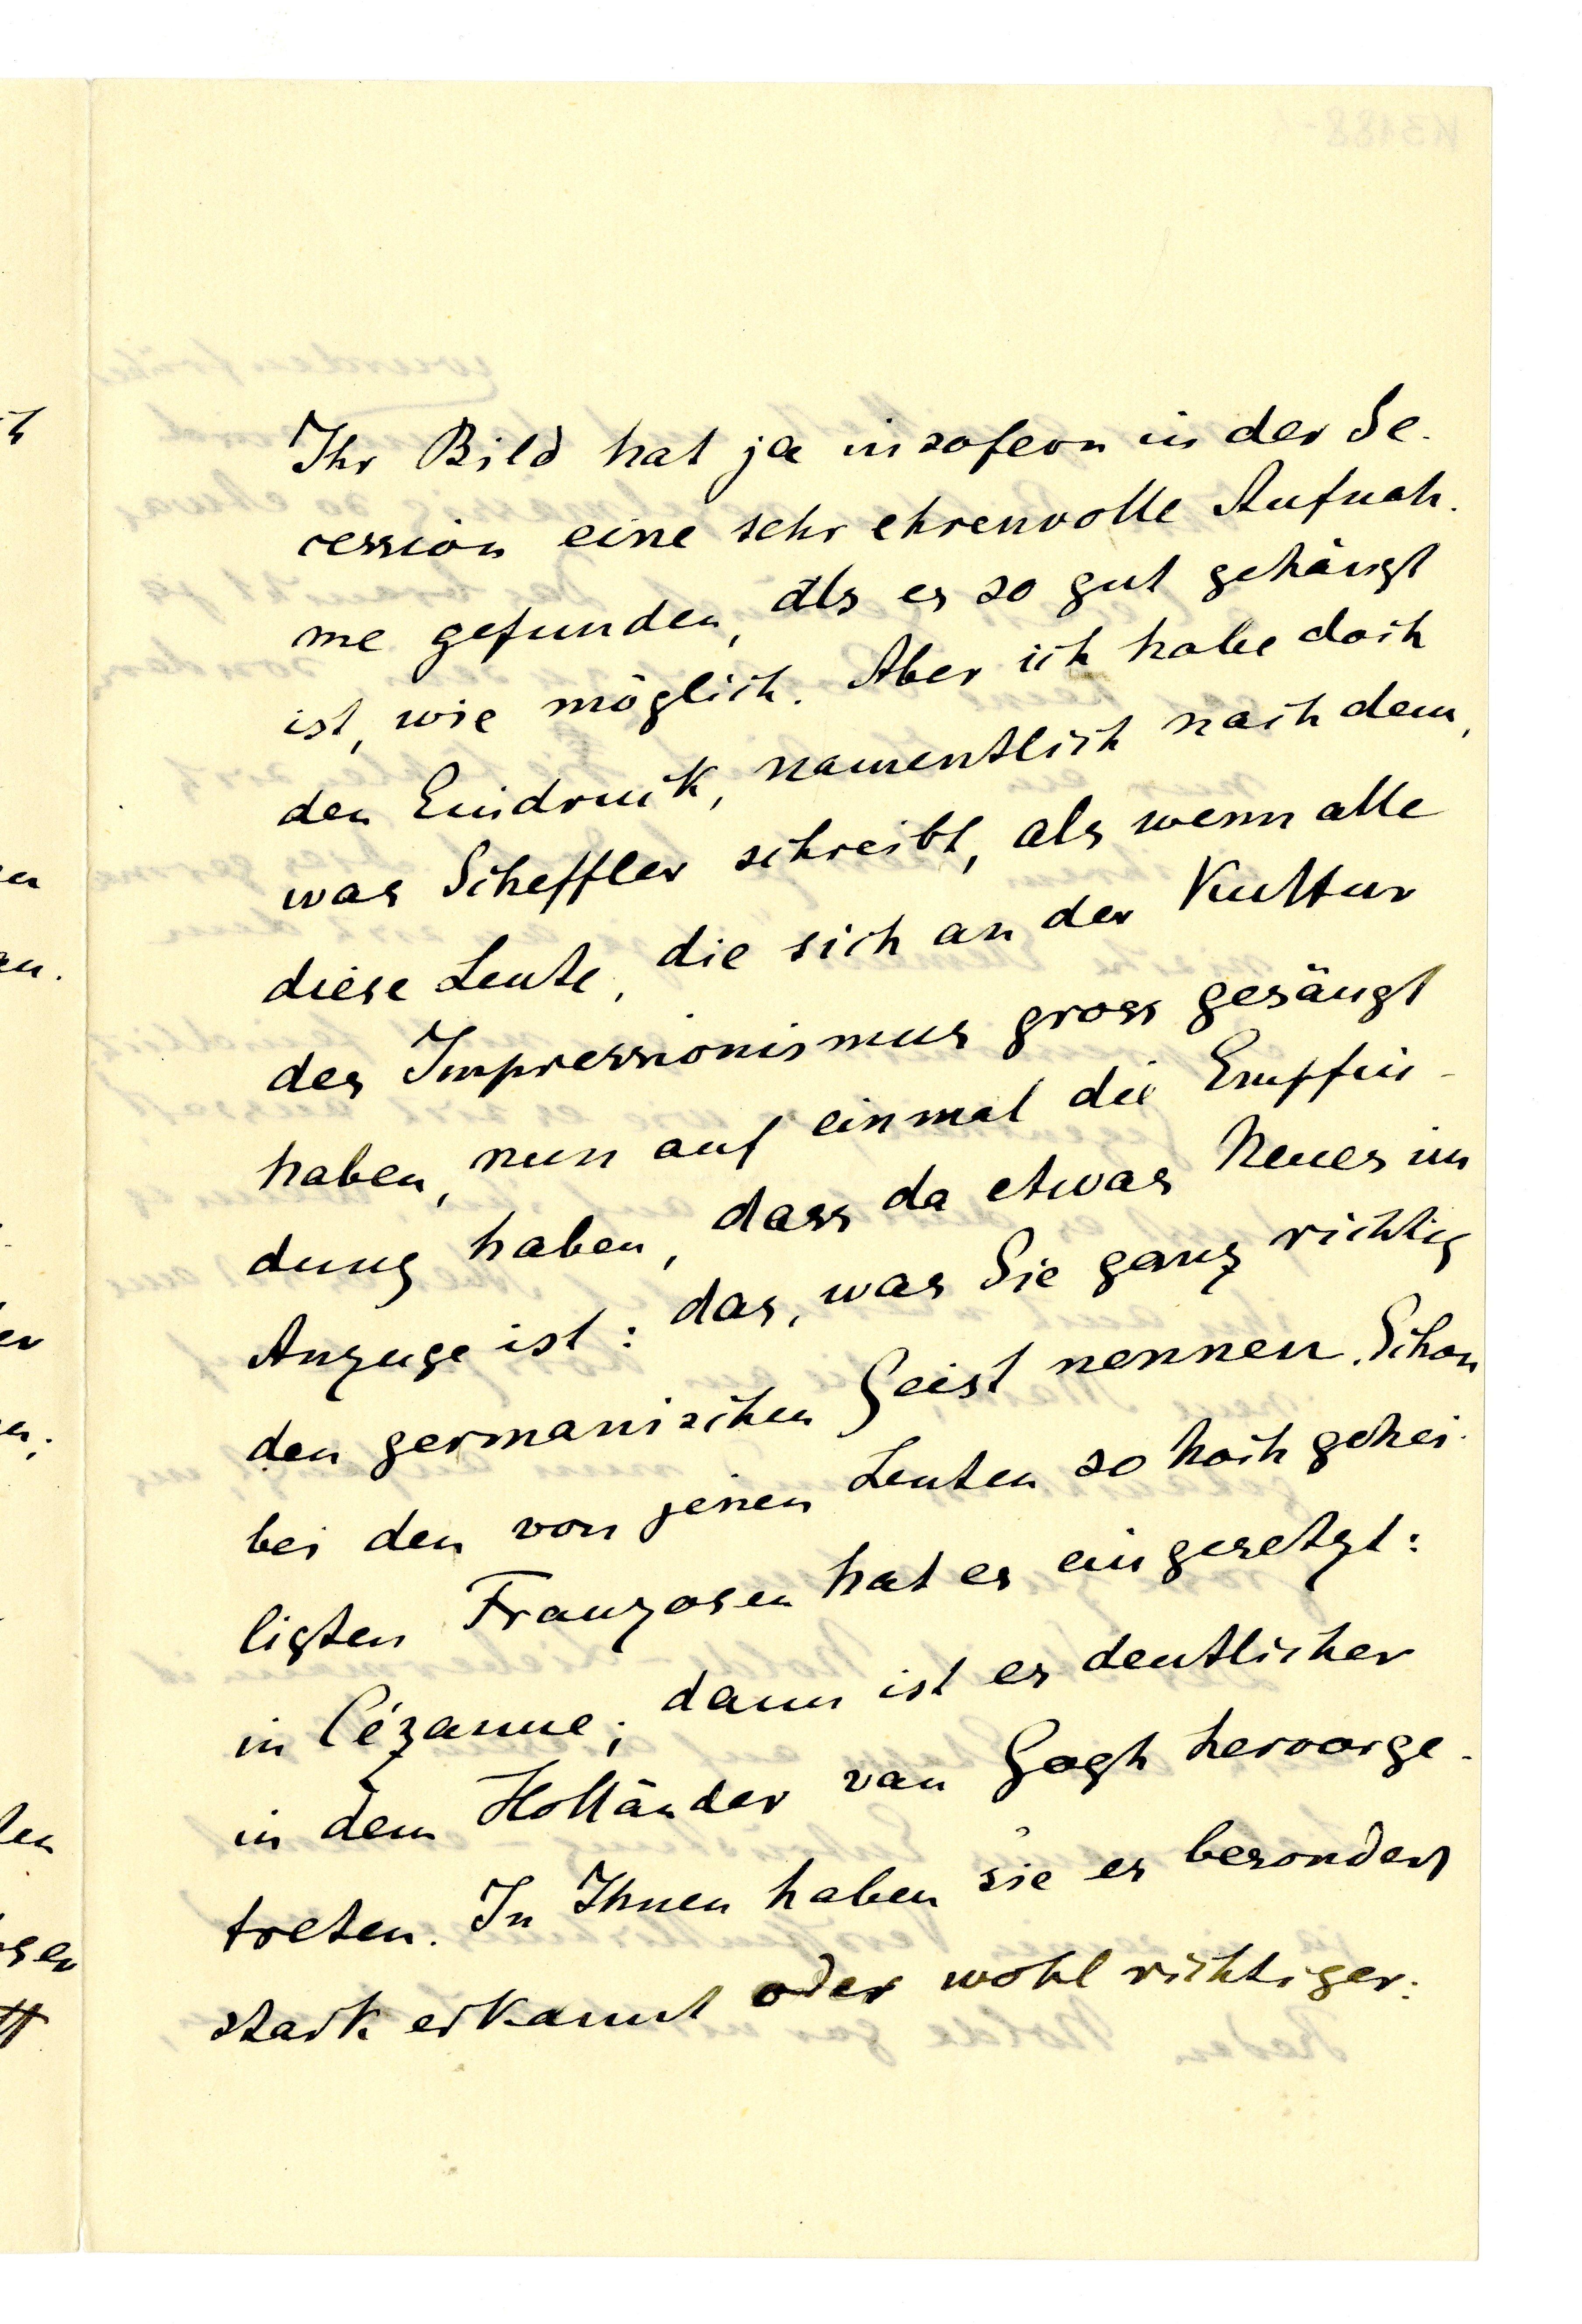 Ihr Bild hat ja insofern in der Se-
cession eine sehr ehrenvolle Aufnah-
me gefunden, als es so gut gehängt
ist, wie möglich. Aber ich habe doch
den Eindruck, namentlich nach dem,
was Scheffler schreibt, als wenn alle
diese Leute, die sich an der Kultur
des Impressionismus gross gesäugt
haben, nun auf einmal die Empfin-
dung haben, dass da etwas Neues im
Anzuge ist: das, was Sie ganz richtig
den germanischen Geist nennen. Schon
bei den von jenen Leuten so hoch gehei-
ligten Franzosen hat es eingesetzt:
in Cézanne; dann ist es deutlicher
in dem Holländer van Gogh hervorge-
treten. In Ihnen haben sie es besonders
stark erkannt oder wohl richtiger: